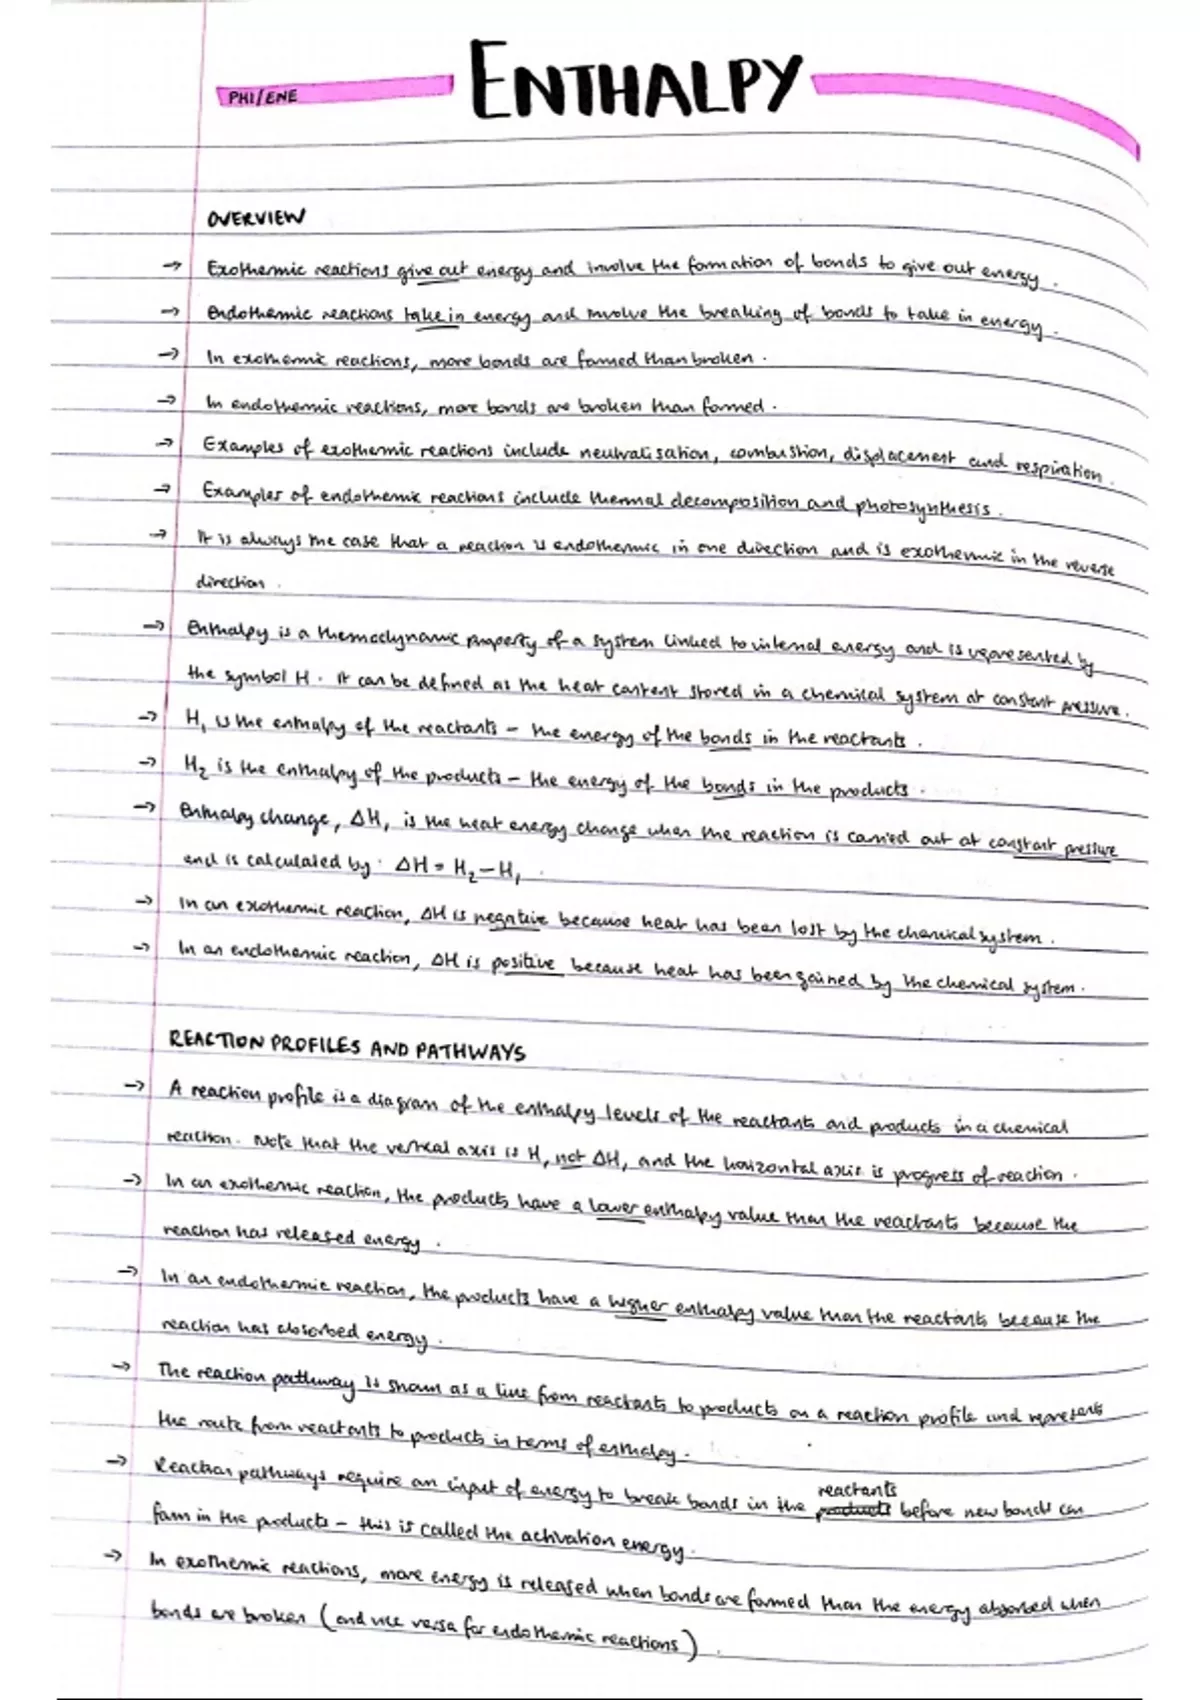 PHI/ENE
ENTHALPY
OVERVIEW
→ Exothermic reactions give out energy and involve the formation of bonds to give out energy.
→ Endothermic reactions take in energy and involve the breaking of bonds to take in energy.
→ In exothermic reactions, more bonds are formed than broken.
→ In endothermic reactions, more bonds are broken than formed.
→ Examples of exothermic reactions include neutralisation, combustion, displacement and respiration.
→ Examples of endothermic reactions include thermal decomposition and photosynthesis.
→ It is always the case that a reaction is endothermic in one direction and is exothermic in the reverse
direction.
→ Enthalpy is a thermodynamic property of a system linked to internal energy and is represented by
the symbol H. It can be defined as the heat content stored in a chemical system at constant pressure.
→ H₁ is the enthalpy of the reactants – the energy of the bonds in the reactants.
→ H₂ is the enthalpy of the products – the energy of the bonds in the products.
→ Enthalpy change, ΔH, is the heat energy change when the reaction is carried out at constant pressure
and is calculated by: ΔH = H₂ – H₁.
→ In an exothermic reaction, ΔH is negative because heat has been lost by the chemical system.
→ In an endothermic reaction, ΔH is positive because heat has been gained by the chemical system.
REACTION PROFILES AND PATHWAYS
→ A reaction profile is a diagram of the enthalpy levels of the reactants and products in a chemical
reaction. Note that the vertical axis is H, not ΔH, and the horizontal axis is progress of reaction.
→ In an exothermic reaction, the products have a lower enthalpy value than the reactants because the
reaction has released energy.
→ In an endothermic reaction, the products have a higher enthalpy value than the reactants because the
reaction has absorbed energy.
→ The reaction pathway is shown as a line from reactants to products on a reaction profile and represents
the route from reactants to products in terms of enthalpy.
reactants
→ Reaction pathways require an input of energy to break bonds in the products before new bonds can
form in the products – this is called the activation energy.
→ In exothermic reactions, more energy is released when bonds are formed than the energy absorbed when
bonds are broken (and vice versa for endothermic reactions).